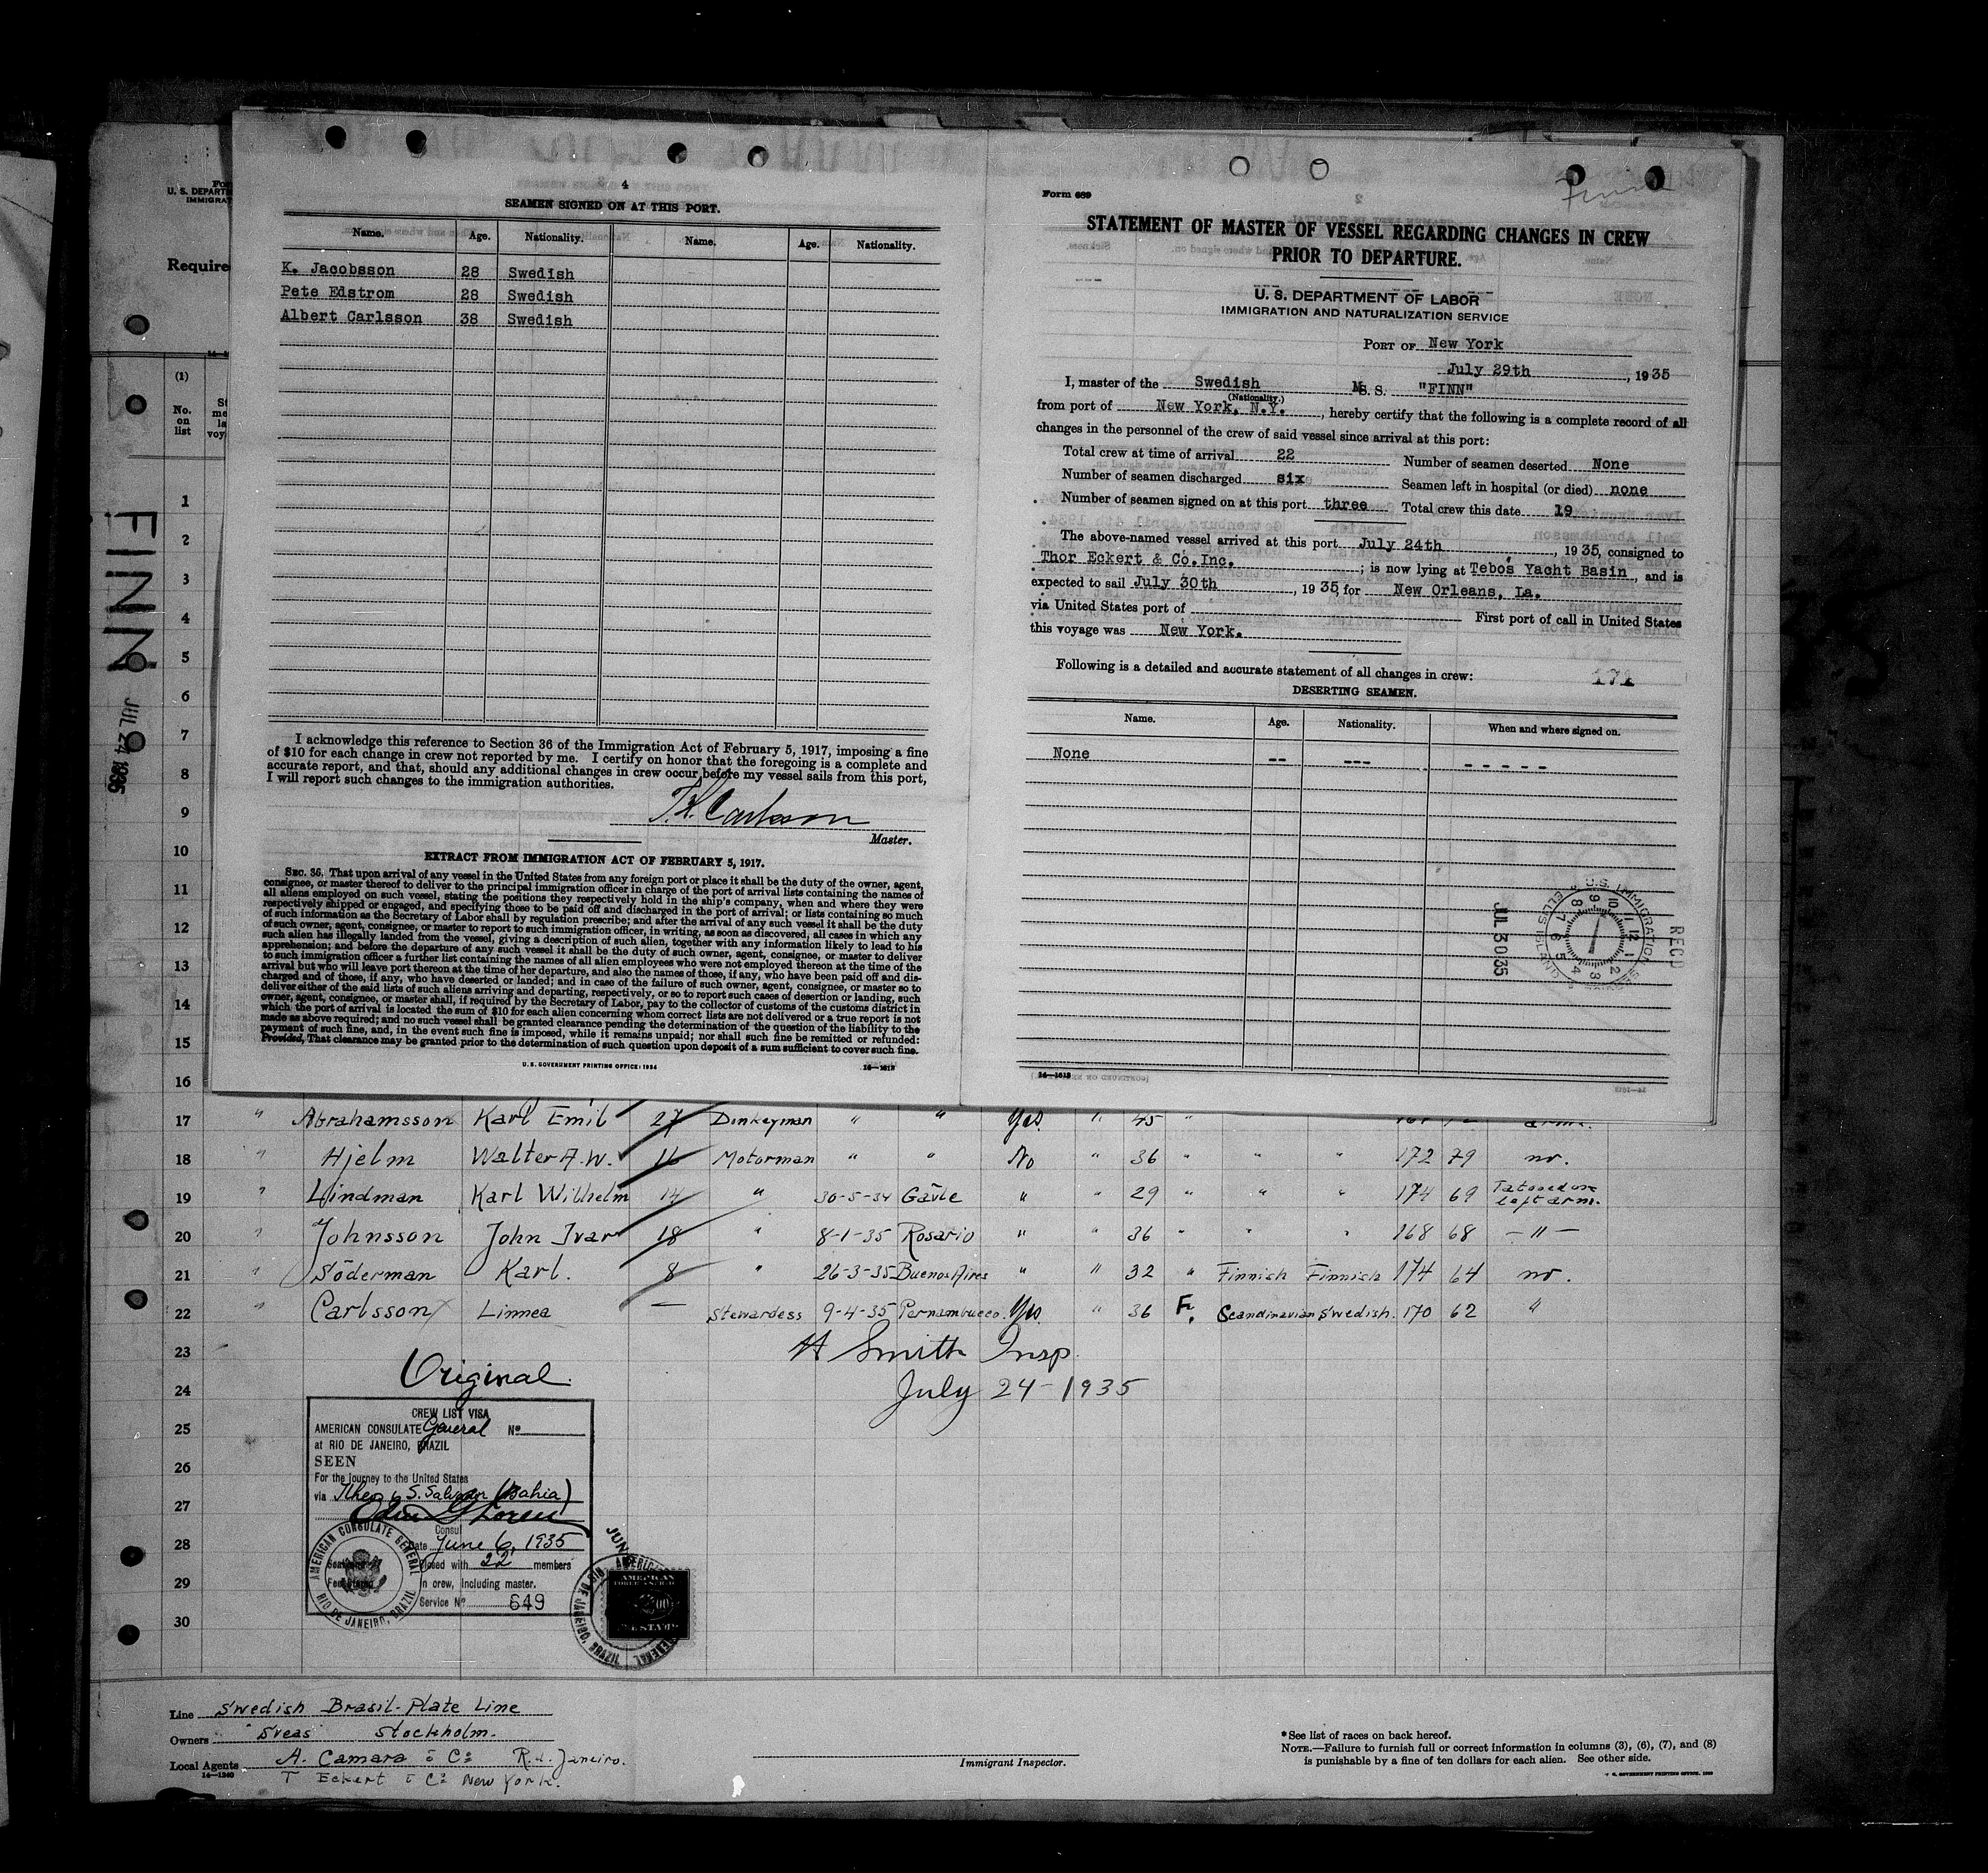 4
SEAMEN SIGNED ON AT THIS PORT.
Name. Age. Nationality. Name. Age. Nationality.
K. Jacobsson 28 Swedish
Pete Edstrom 28 Swedish
Albert Carlsson 38 Swedish
I acknowledge this reference to Section 36 of the Immigration Act of February 5, 1917, imposing a fine
of $10 for each change in crew not reported by me. I certify on honor that the foregoing is a complete and
accurate report, and that, should any additional changes in crew occur before my vessel sails from this port,
I will report such changes to the immigration authorities.
Carlsson
Master.
EXTRACT FROM IMMIGRATION ACT OF FEBRUARY 5, 1917.
SEC. 36. That upon arrival of any vessel in the United States from any foreign port or place it shall be the duty of the owner, agent,
consignee, or master thereof to deliver to the principal immigration officer in charge of the port of arrival lists containing the names of
all aliens employed on such vessel, stating the positions they respectively hold in the ship's company, when and where they were
respectively shipped or engaged, and specifying those to be paid off and discharged in the port of arrival; or lists containing so much
of such information as the Secretary of Labor shall by regulation prescribe; and after the arrival of any such vessel it shall be the duty
of such owner, agent, consignee, or master to report to such immigration officer, in writing, as soon as discovered, all cases in which any
such alien has illegally landed from the vessel, giving a description of such alien, together with any information likely to lead to his
apprehension; and before the departure of any such vessel it shall be the duty of such owner, agent, consignee, or master to deliver
to such immigration officer a further list containing the names of all alien employees who were not employed thereon at the time of the
arrival but who will leave port thereon at the time of her departure, and also the names of those, if any, who have been paid off and dis-
charged and of those, if any, who have deserted or landed; and in case of the failure of such owner, agent, consignee, or master so to
deliver either of the said lists of such aliens arriving and departing, respectively, or so to report such cases of desertion or landing, such
owner, agent, consignee, or master shall, if required by the Secretary of Labor, pay to the collector of customs of the customs district in
which the port of arrival is located the sum of $10 for each alien concerning whom correct lists are not delivered or a true report is not
made as above required; and no such vessel shall be granted clearance pending the determination of the question of the liability to the
payment of such fine, and, in the event such fine is imposed, while it remains unpaid; nor shall such fine be remitted or refunded:
Provided, That clearance may be granted prior to the determination of such question upon deposit of a sum sufficient to cover such fine.
U. S. GOVERNMENT PRINTING OFFICE: 1934 14—1613
Form 689
Finn
STATEMENT OF MASTER OF VESSEL REGARDING CHANGES IN CREW
PRIOR TO DEPARTURE.
U. S. DEPARTMENT OF LABOR
IMMIGRATION AND NATURALIZATION SERVICE
PORT OF New York
July 29th, 1935
I, master of the Swedish M S. S. "FINN"
(Nationality.)
from port of New York, N.Y., hereby certify that the following is a complete record of all
changes in the personnel of the crew of said vessel since arrival at this port:
Total crew at time of arrival 22 Number of seamen deserted None
Number of seamen discharged six Seamen left in hospital (or died) none
Number of seamen signed on at this port three Total crew this date 19
The above-named vessel arrived at this port July 24th, 1935, consigned to
Thor Eckert & Co. Inc.; is now lying at Tebos Yacht Basin, and is
expected to sail July 30th, 1935, for New Orleans, La.
via United States port of First port of call in United States
this voyage was New York.
Following is a detailed and accurate statement of all changes in crew: 171
DESERTING SEAMEN.
Name. Age. Nationality. When and where signed on.
None -- --- -----
JUL 30 35
U.S. IMMIGRATION
ELLIS ISLAND
REC'D
14—1613
U. S. DEPART
IMMIGRAT
Require
(1)
No. on list
FINN JUL 24 1935
1
2
3
4
5
6
7
8
9
10
11
12
13
14
15
16
17 " Abrahamsson Karl Emil 27 Donkeyman " " Yes " 45 "
18 " Hjelm Walter A.W. 16 Motorman " " No " 36 " " " 172 79 no.
19 " Lindman Karl Wilhelm 14 " 30-5-34 Gävle " " 29 " " " 174 69 Tatooed on left arm.
20 " Johnsson John Ivar 18 " 8-1-35 Rosario " " 36 " " " 168 68 —"—
21 " Söderman Karl. 8 " 26-3-35 Buenos Aires " " 32 " Finnish Finnish 174 64 no.
22 " Carlsson Linnea — Stewardess 9-4-35 Pernambuco. Yes " 36 F. Scandinavian Swedish. 170 62 "
23 H Smith Insp.
24 July 24-1935
Original
25
26
27
28
29
30
CREW LIST VISA
AMERICAN CONSULATE General No
at RIO DE JANEIRO, BRAZIL
SEEN
For the journey to the United States
via Ilheos S. Salvador (Bahia)
Consul
Date June 6, 1935
Closed with 22 members
in crew, including master.
Service No 649
AMERICAN CONSULATE GENERAL
RIO DE JANEIRO, BRAZIL
JUN
AMERICAN
Line Swedish Brasil-Plate Line
Owners "Sveas" Stockholm.
Local Agents A. Camara & Co R. d. Janeiro.
14—1240
T Eckert & Co New York.
Immigrant Inspector.
* See list of races on back hereof.
NOTE.—Failure to furnish full or correct information in columns (3), (6), (7), and (8)
is punishable by a fine of ten dollars for each alien. See other side.